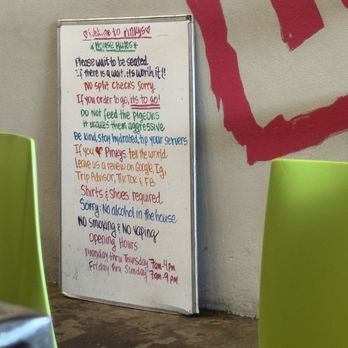 Welcome to Pinkys
House Rules
Please wait to be seated
If there is a wait, its worth it!!
No split checks sorry
If you order to go, its to go!
Do not feed the pigeons
It makes them aggressive
Be kind, stay hydrated, tip your servers
If you ♥ Pinkys tell the world
Leave us a review on Google, Ig,
Trip Advisor, Tik Tok & FB
Shirts & Shoes required
Sorry: No alcohol in the house
No Smoking & No Vaping
Opening Hours
Monday thru Thursday 7am-4pm
Friday thru Sunday 7am-9pm